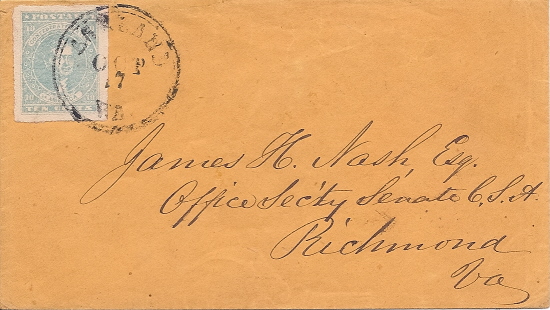 POSTAGE
TEN CENTS
OCT
17
James H. Nash Esq.
Office Sect'y Senate C.S.A.
Richmond
Va